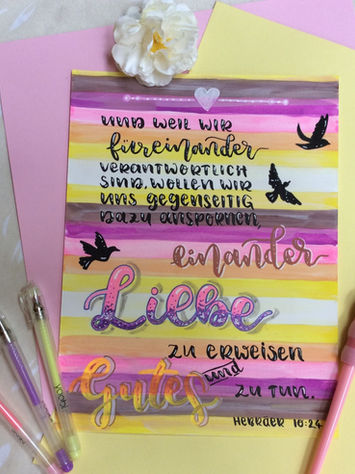 und weil wir
füreinander
verantwortlich
sind, wollen wir
uns gegenseitig
dazu anspornen,
einander
Liebe
zu erweisen
und
Gutes
zu tun.
Hebräer 10:24